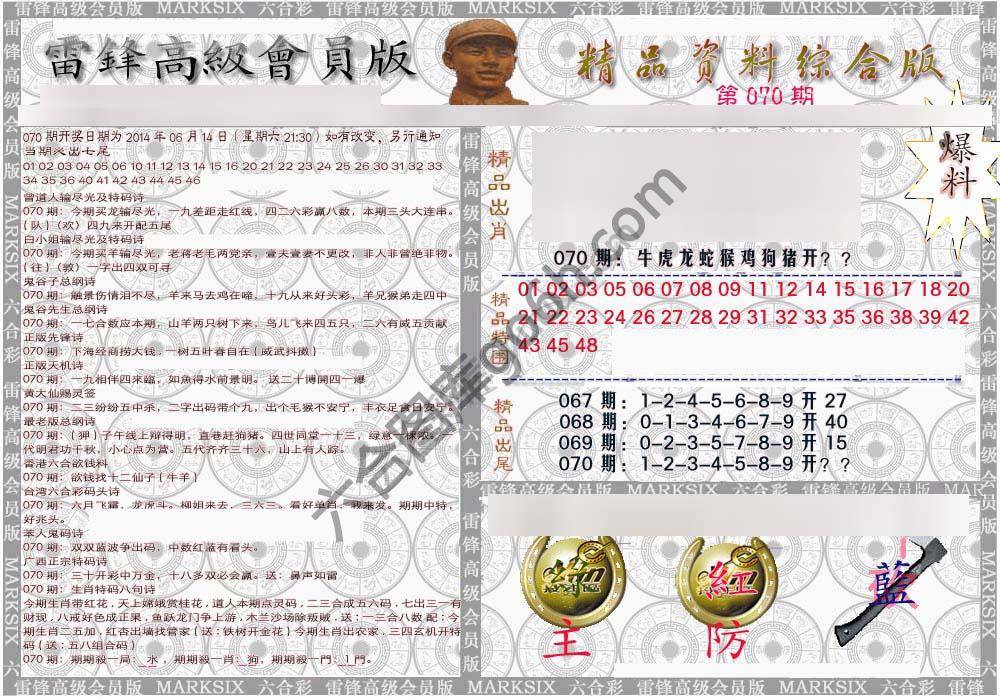 雷锋高级会员版 MARKSIX 六合彩 雷锋高级会员版 MARKSIX 六合彩 雷锋高级会员版
雷鋒高級會員版
精品资料综合版
第070期
爆料
070期开奖日期为2014年06月14日(星期六21:30)如有改变,另行通知
当期必出七尾
01 02 03 04 05 06 10 11 12 13 14 15 16 20 21 22 23 24 25 26 30 31 32 33
34 35 36 40 41 42 43 44 45 46
曾道人输尽光及特码诗
070期:今期买龙输尽光,一九差距走红线,四二六彩赢八数,本期三头大连串。
{队}〈欢〉四九来开配五尾
白小姐输尽光及特码诗
070期:今期买羊输尽光,老蒋老毛两党亲,壹夫壹妻不更改,非人非曾绝非物。
{往}〈敦〉一字出四双可寻
鬼谷子总纲诗
070期:融景伤情泪不尽,羊来马去鸡在啼,十九从来好头彩,羊兄猴弟走四中
鬼谷先生总纲诗
070期:一七合数应本期,山羊两只树下来,鸟儿飞来四五只,二六有威五贡献
正版先锋诗
070期:下海经商捞大钱,一树五叶春自在(威武抖擞)
正版天机诗
070期:一九相伴四來臨,如魚得水前景明。送二十博開四一爆
黄大仙赐灵签
070期:二三纷纷五中杀,二字出码带个九,出个毛猴不安宁,丰衣足食日安宁。
最老版总纲诗
070期:{狎}子午线上辩得明,直巷赶狗猪。四世同堂一十三,绿意一棵浓。一
代明君功千秋,小心点为营。五代齐齐三十六,山上有人踪。
香港六合欲钱料
070期:欲钱找十二仙子{牛羊}
台湾六合彩码头诗
070期:六月飞霜,龙虎斗。柳姐来去,三六三。看好单肖,我来发。期期中特,
好兆头。
苯人鬼码诗
070期:双双蓝波争出码,中数红蓝有看头。
广西正宗特码诗
070期:三十开彩中万金,十八多双必会赢。送:鼻声如雷
070期:生肖特码八句诗
今期生肖带红花,天上嫦娥赏桂花,道人本期点灵码,二三合成五六码,七出三一有
财现,八戒好色成正果,鱼跃龙门争上游,木兰沙场除叛贼.送:一三合八数 配:今
期生肖二五加,红杏出墙找管家{送:铁树开金花}今期生肖出农家,三四玄机开特
码{送:五八组合码}
070期:期期殺一局:水,期期殺一肖:狗,期期殺一門:1門。
精品出肖
070期:牛虎龙蛇猴鸡狗猪开??
精品特围
01 02 03 05 06 07 08 09 11 12 14 15 16 17 18 20
21 22 23 24 26 27 28 29 31 32 33 35 36 38 39 42
43 45 48
精品出尾
067期:1-2-4-5-6-8-9开27
068期:0-1-3-4-6-7-9开40
069期:0-2-3-5-7-8-9开15
070期:1-2-3-4-5-8-9开??
雷锋高级会员版 MARKSIX 六合彩 雷锋高级会员版
红
藍
主
防
六合图库
雷锋高级会员版 MARKSIX 六合彩 雷锋高级会员版 MARKSIX 六合彩 雷锋高级会员版